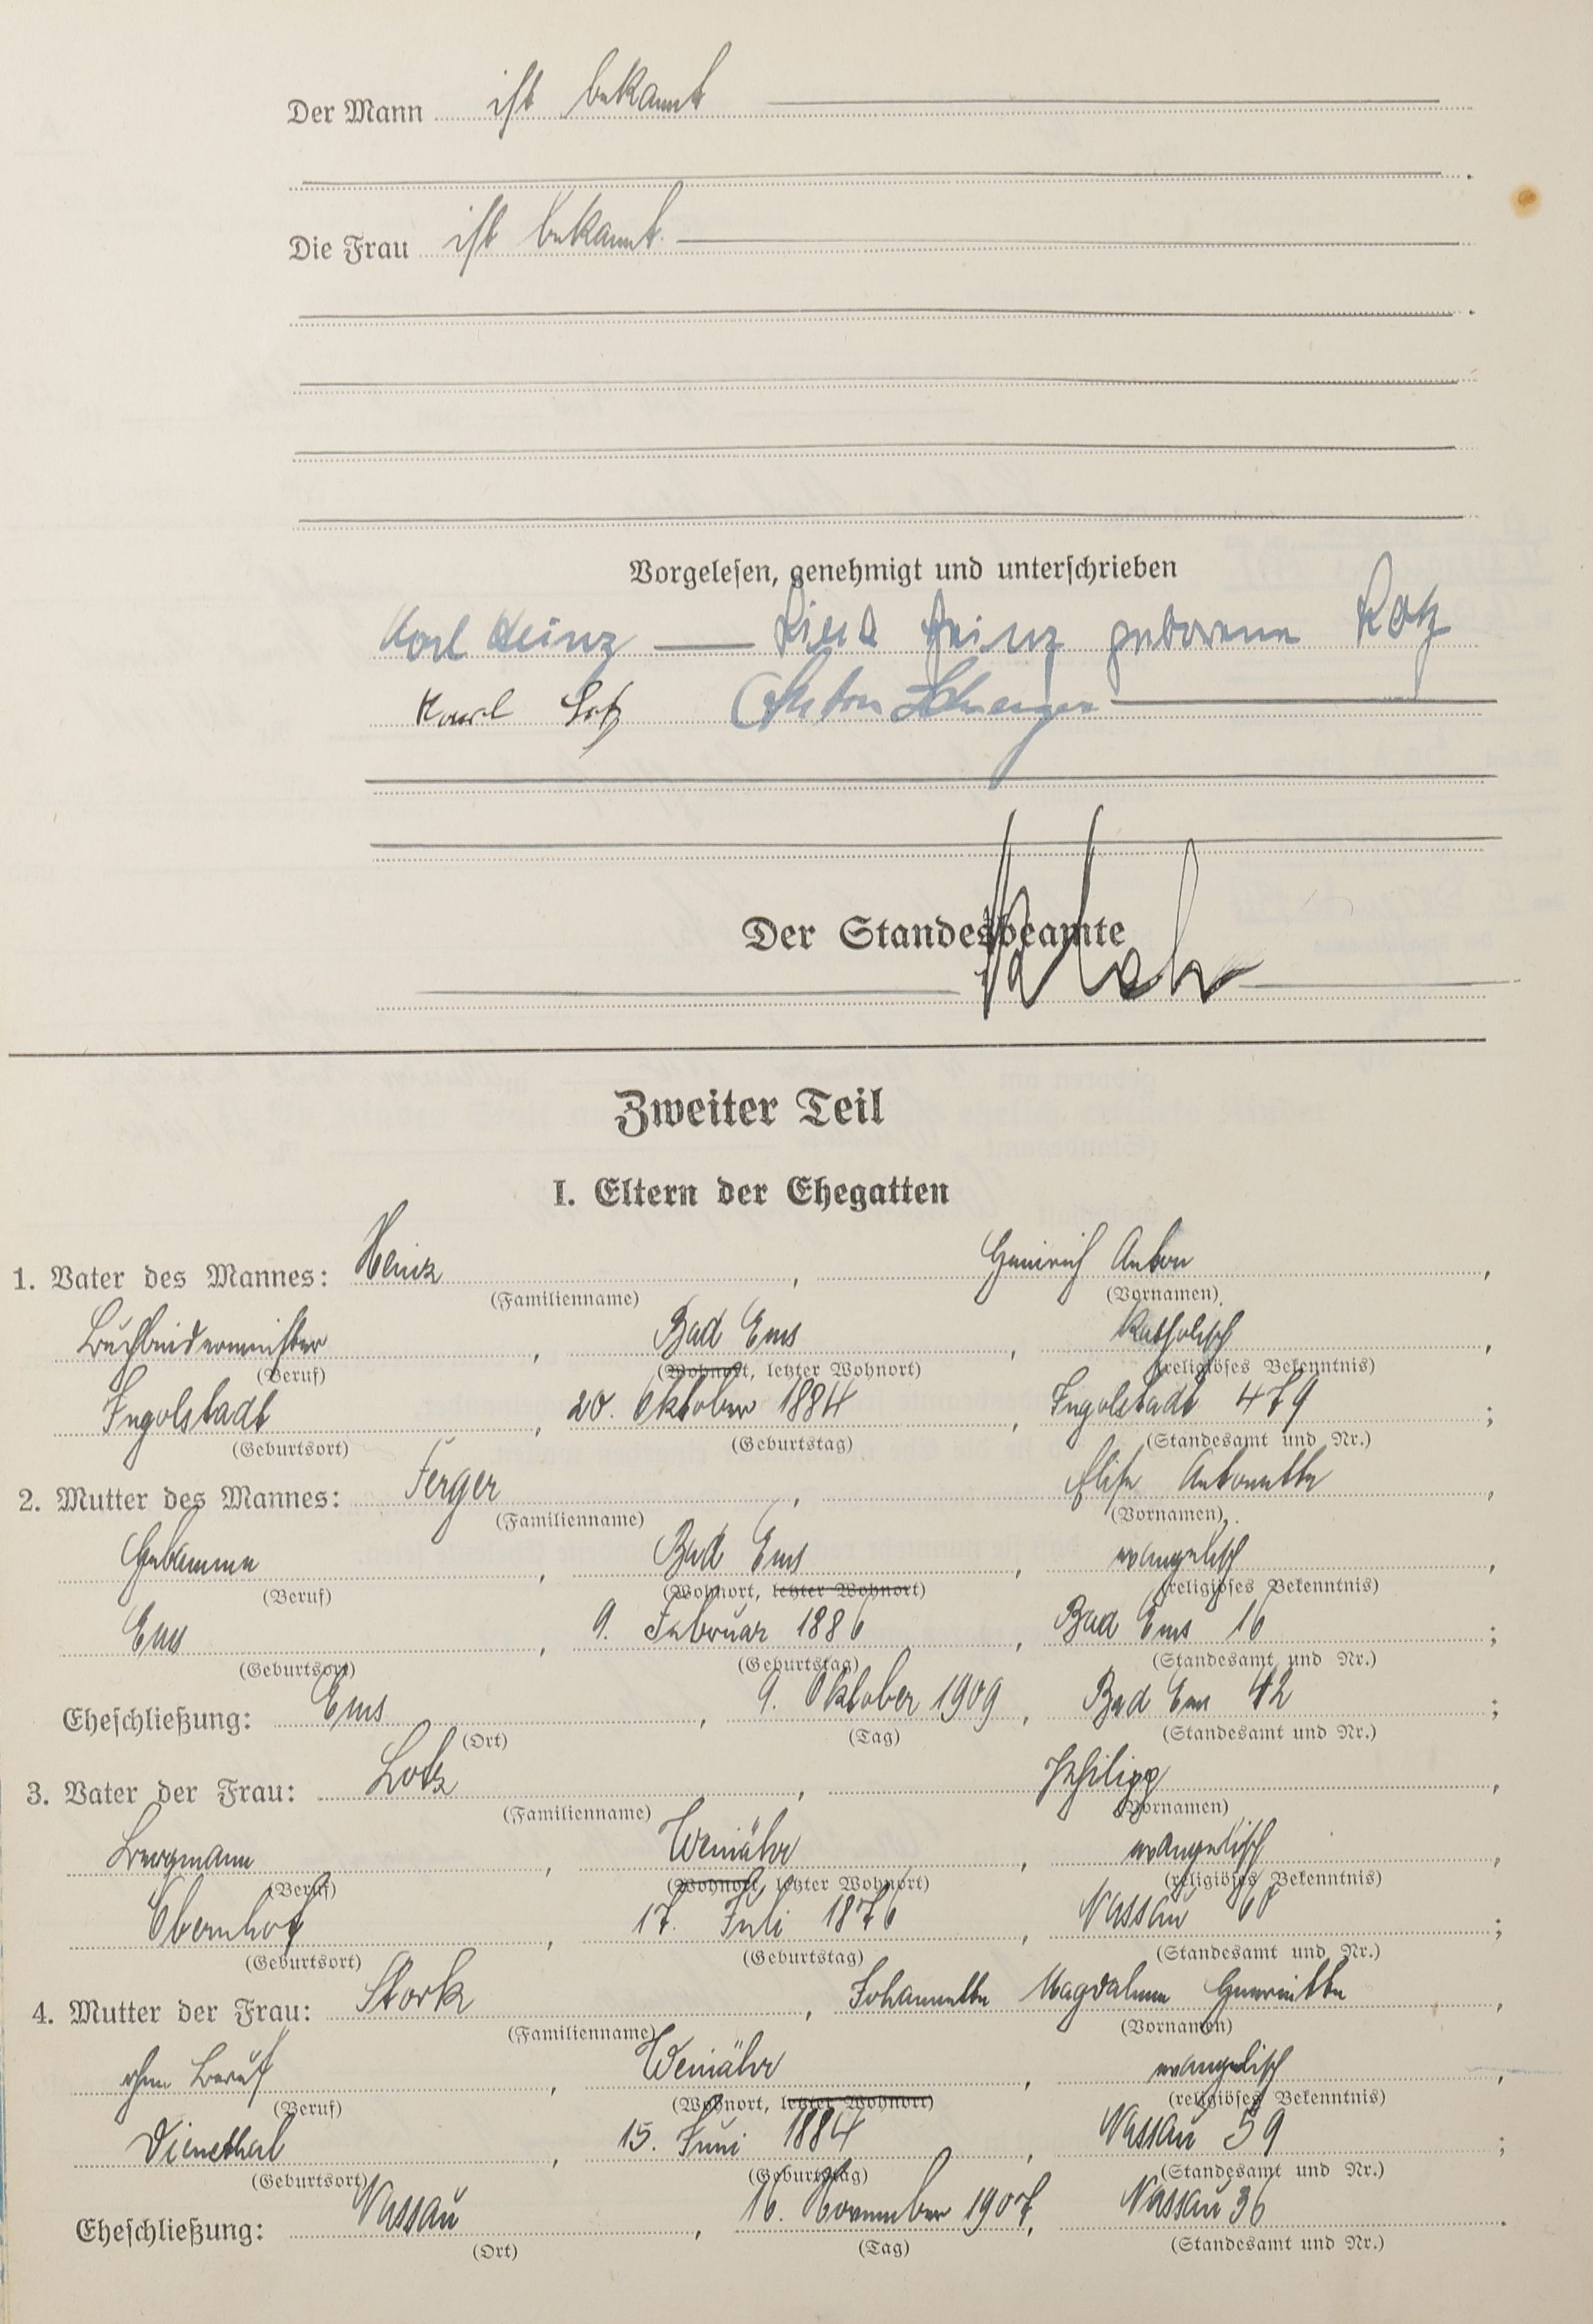 Der Mann ist bekannt
Die Frau ist bekannt.
Vorgelesen, genehmigt und unterschrieben
Karl Heinz Lina Heinz geborene Lotz
Karl Lotz Anton
Der Standesbeamte
Zweiter Teil
I. Eltern der Ehegatten
1. Vater des Mannes: Heinz, Heinrich Anton,
(Familienname) (Vornamen)
Buchbindermeister, Bad Ems, katholisch,
(Beruf) (Wohnort, letzter Wohnort) (religiöses Bekenntnis)
Ingolstadt, 20. Oktober 1884, Ingolstadt 479;
(Geburtsort) (Geburtstag) (Standesamt und Nr.)
2. Mutter des Mannes: Ferger, Elise Antonette,
(Familienname) (Vornamen)
Hebamme, Bad Ems, evangelisch,
(Beruf) (Wohnort, letzter Wohnort) (religiöses Bekenntnis)
Ems, 9. Februar 1886, Bad Ems 16;
(Geburtsort) (Geburtstag) (Standesamt und Nr.)
Eheschließung: Ems, 9. Oktober 1909, Bad Ems 42;
(Ort) (Tag) (Standesamt und Nr.)
3. Vater der Frau: Lotz, Philipp,
(Familienname) (Vornamen)
Bergmann, Weinähr, evangelisch,
(Beruf) (Wohnort, letzter Wohnort) (religiöses Bekenntnis)
Obernhof, 17. Juli 1876, Nassau 60;
(Geburtsort) (Geburtstag) (Standesamt und Nr.)
4. Mutter der Frau: Stork, Johannette Magdalena Henriette,
(Familienname) (Vornamen)
ohne Beruf, Weinähr, evangelisch,
(Beruf) (Wohnort, letzter Wohnort) (religiöses Bekenntnis)
Dienethal, 15. Juni 1884, Nassau 59;
(Geburtsort) (Geburtstag) (Standesamt und Nr.)
Eheschließung: Nassau, 16. November 1907, Nassau 36.
(Ort) (Tag) (Standesamt und Nr.)